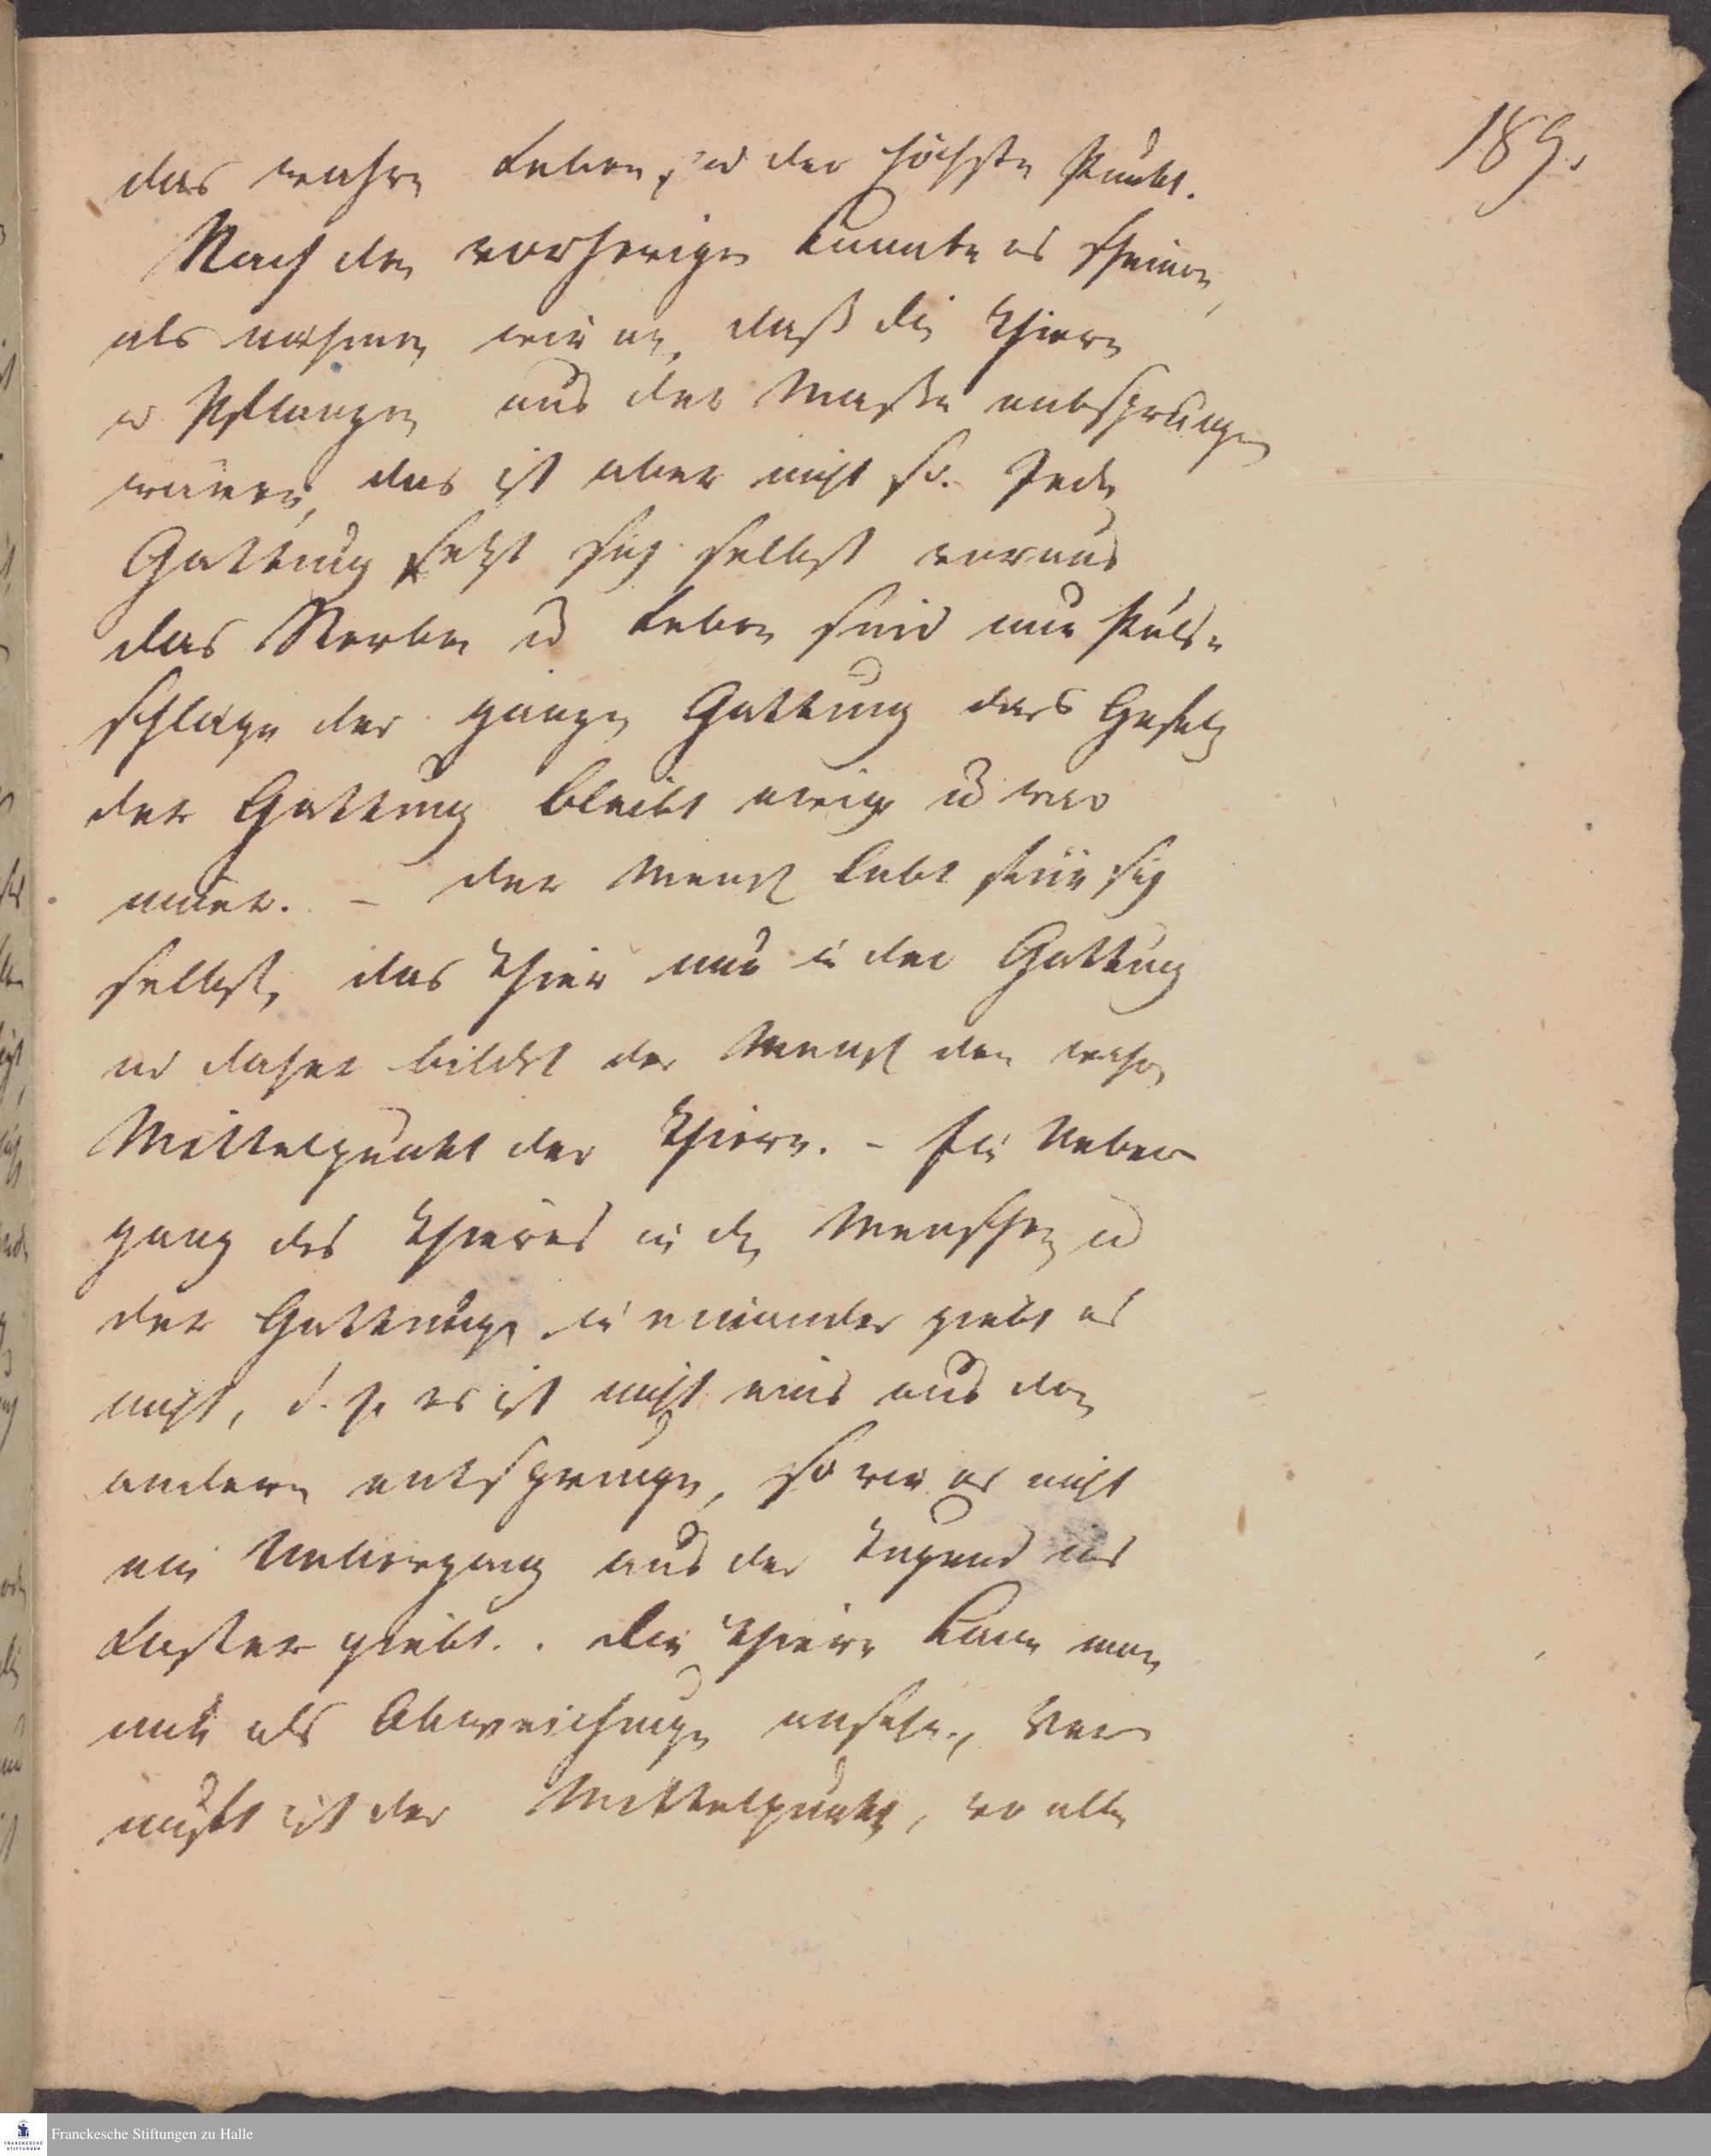 189.
das wahre Leben, u der höchste Punkt.
Nach dem vorherigen konnte es scheinen,
als nähmen wir an, daß die Thiere
u Pflanzen aus der Masse entsprungen
wären, das ist aber nicht so. Jede
Gattung setzt sich selbst voraus
das Sterben u Leben sind nur Puls-
schläge der ganzen Gattung das Gesetz
der Gattung bleibt ewig u
– der Mensch lebt für sich
selbst, das Thier nur in der Gattung
u daher bildet der Mensch den wahren
Mittelpunkt der Thiere. – Ein Ueber
gang des Thieres in den Menschen u
der Gattungen in einander giebt es
nicht, d. h. es ist nicht eins aus dem
andern entsprungen, so wie es nicht
ein Uebergang aus der Tugend ins
Laster giebt. Die Thiere kann man
nur als Abweichungen ansehn, Ver
nunft ist der Mittelpunkt, wo alle
Franckesche Stiftungen zu Halle
FRANCKESCHE STIFTUNGEN